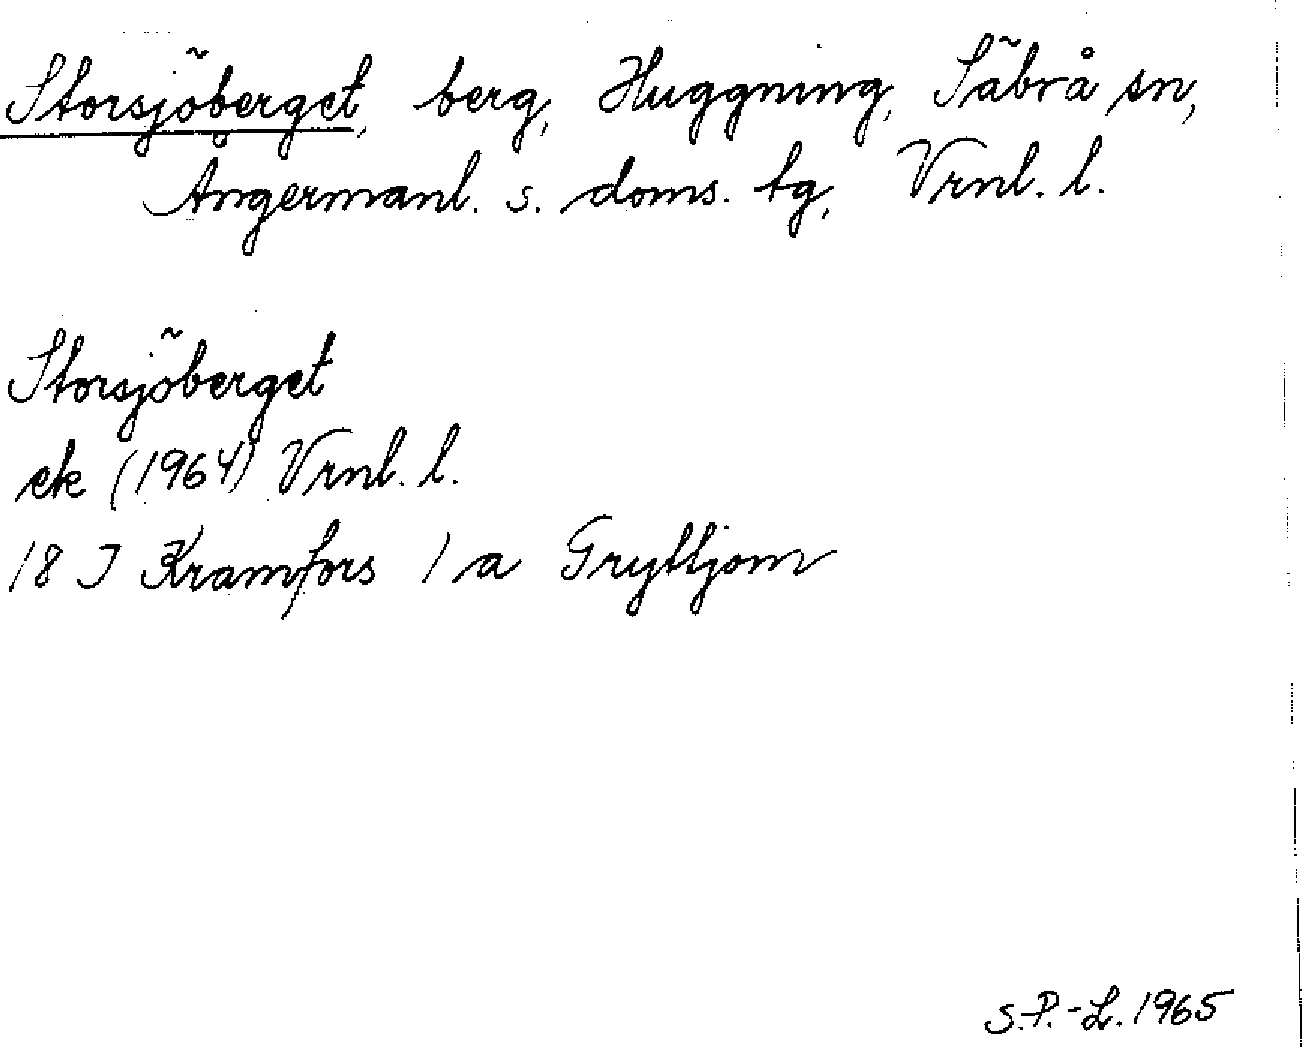 Storsjöberget, berg, Huggning, Säbrå sn,
Ångermanl. s. doms. tg, Vrnl. l.
Storsjöberget
ek (1964) Vrnl. l.
18 I Kramfors 1 a Gryttjom
S.P.-L. 1965